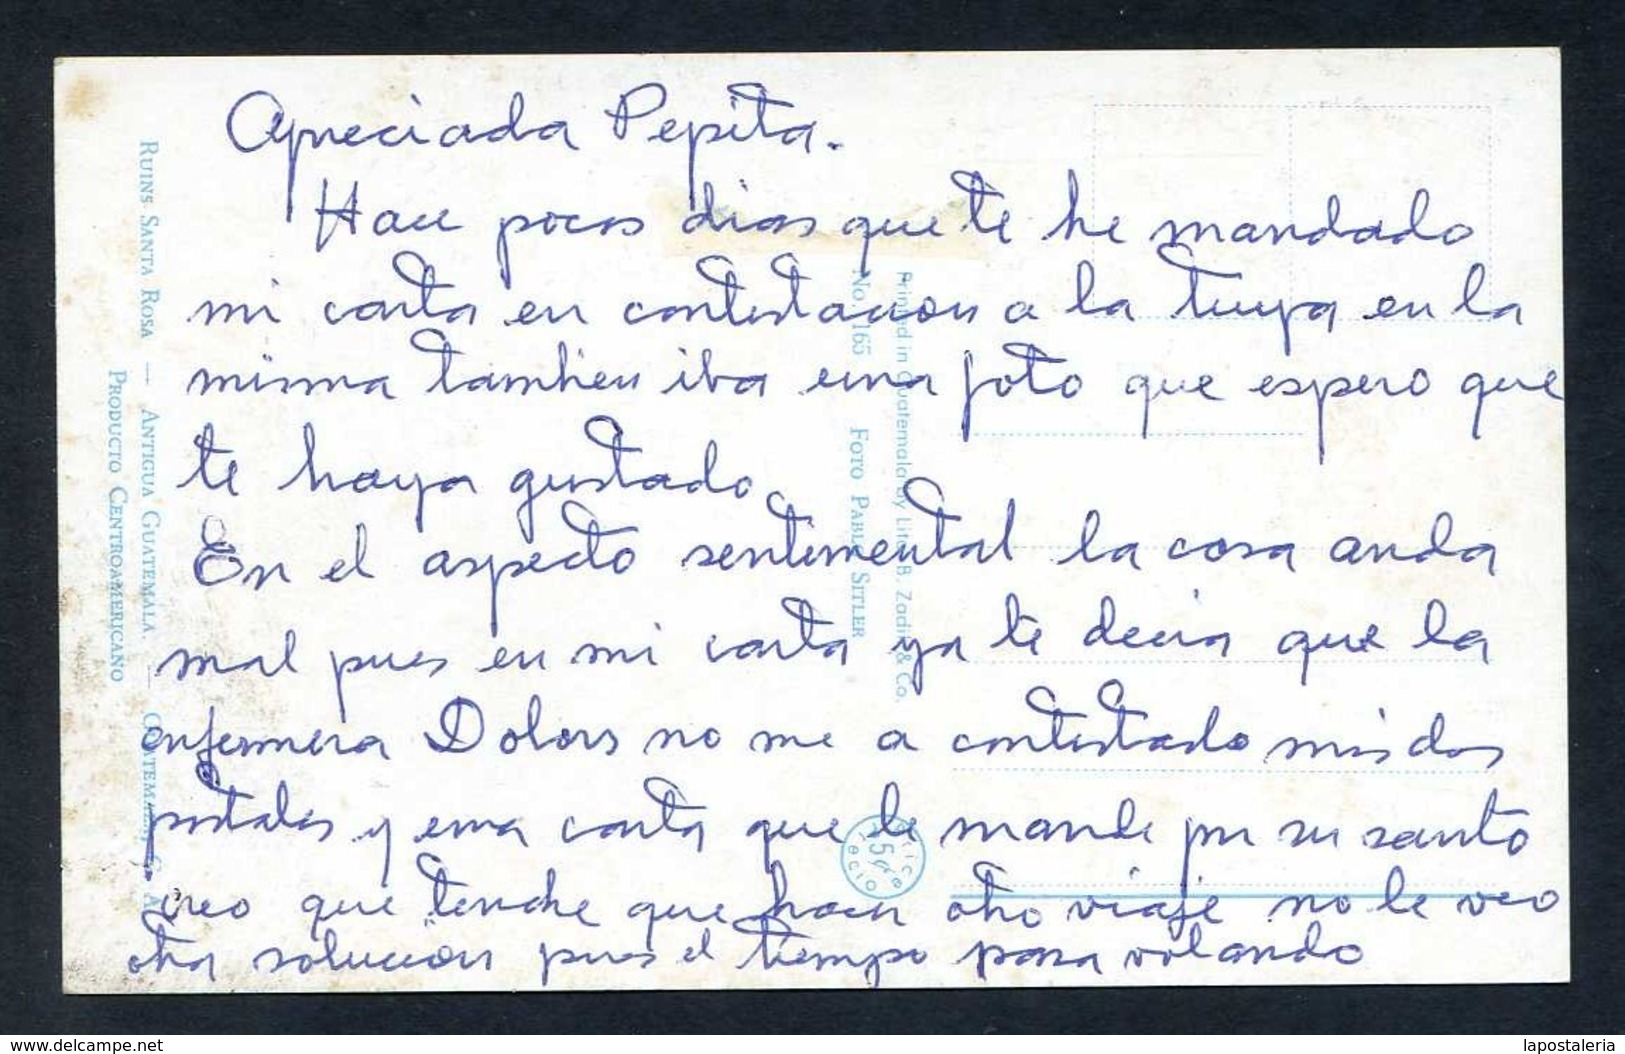 Apreciada Pepita.
Hace pocos dias que te he mandado
mi carta en contestacion a la tuya en la
misma tambien iba una foto que espero que
te haya gustado
En el aspecto sentimental la cosa anda
mal pues en mi carta ya te decia que la
enfermera Dolors no me a contestado mis dos
postales y una carta que le mande por su santo
creo que tendre que hacer otro viaje no le veo
otra solucion pues el tiempo pasa volando
RUINS SANTA ROSA — ANTIGUA GUATEMALA — GUATEMALA, C. A.
PRODUCTO CENTROAMERICANO
No. 165 FOTO PABLO SITLER
Printed in Guatemala by Lito B. Zadik & Co.
Price 5¢ Precio
www.delcampe.net
lapostaleria